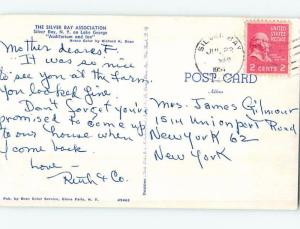 THE SILVER BAY ASSOCIATION
Silver Bay, N. Y. on Lake George
"Auditorium and Inn"
Kodachrome by Richard K. Dean
Mother dearest
It was so nice
to see you at the farm.
You looked fine.
Don't forget you
promised to come up
to our house when
I come back.
Love —
Ruth & Co.
Pub. by Dean Color Service, Glens Falls, N. Y.
SILVER BAY
POST CARD
2 CENTS 2
Mrs. James Gilmour
1514 Unionport Road
New York 62
New York